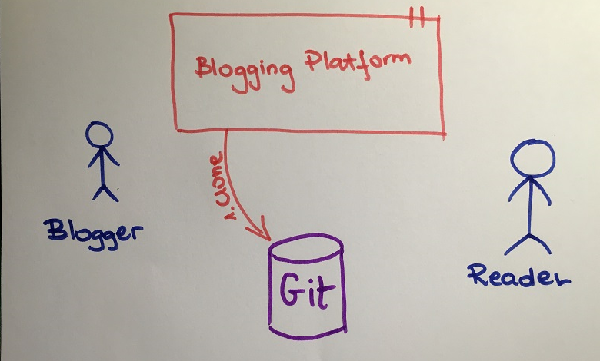 Blogging Platform
1. Clone
Blogger
Git
Reader